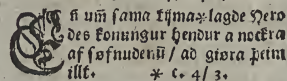 Eñ um̃ sama tijma * lagde Hero
des konungur hendur a nockra
af søfnudenū / ad giøra þeim
illt. * c. 4 / 3.